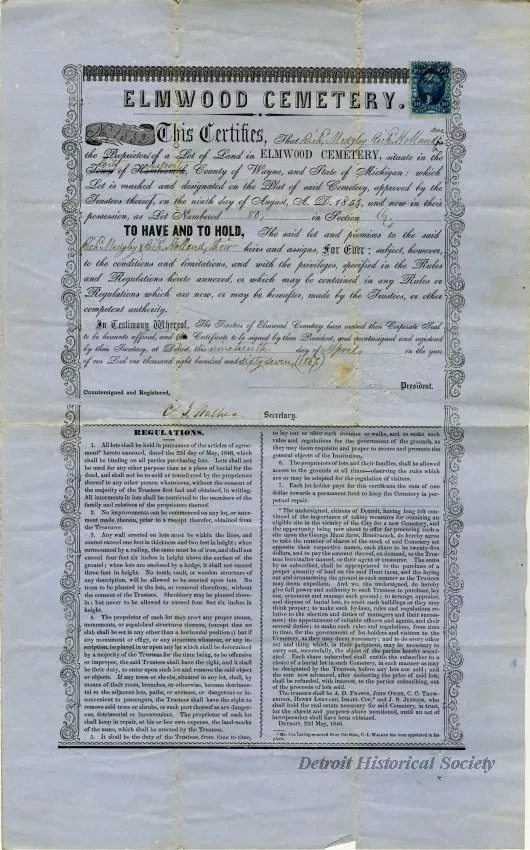 ELMWOOD CEMETERY.
This Certifies, That Rich. Medgley & Rich. Holland are
the Proprietors of a Lot of Land in ELMWOOD CEMETERY, situate in the
of Hamtramck, County of Wayne, and State of Michigan: which
Lot is marked and designated on the Plat of said Cemetery, approved by the
Trustees thereof, on the ninth day of August, A. D. 1854, and now in their
possession, as Lot Numbered 80, in Section
TO HAVE AND TO HOLD, The said lot and premises to the said
Rich. Medgley & Rich. Holland, their heirs and assigns, For Ever: subject, however,
to the conditions and limitations, and with the privileges, specified in the Rules
and Regulations hereto annexed, or which may be contained in any Rules or
Regulations which are now, or may be hereafter, made by the Trustees, or other
competent authority.
In Testimony Whereof, The Trustees of Elmwood Cemetery have caused their Corporate Seal
to be hereunto affixed, and this Certificate to be signed by their President, and countersigned and registered
by their Secretary, at Detroit, this nineteenth day of April, in the year
of our Lord one thousand eight hundred and sixty seven, (1867)
President.
Countersigned and Registered,
C. I. Walker Secretary.
REGULATIONS.
1. All lots shall be held in pursuance of the articles of agree-
ment* hereto annexed, dated the 22d day of May, 1846, which
shall be binding on all parties purchasing lots. Lots shall not
be used for any other purpose than as a place of burial for the
dead, and shall not be re-sold or transferred by the proprietors
thereof to any other person whatsoever, without the consent of
the majority of the Trustees first had and obtained, in writing.
All interments in lots shall be restricted to the members of the
family and relatives of the proprietors thereof.
2. No improvements can be commenced on any lot, or inter-
ment made therein, prior to a receipt therefor, obtained from
the Treasurer.
3. Any wall erected on lots must be within the lines, and
cannot exceed one foot in thickness and two feet in height; when
surmounted by a railing, the same must be of iron, and shall not
exceed four feet six inches in height above the surface of the
ground; when lots are enclosed by a hedge, it shall not exceed
three feet in height. No tomb, vault, or wooden structure of
any description, will be allowed to be erected upon lots. No
trees to be planted in the lots, or removed therefrom, without
the consent of the Trustees. Shrubbery may be planted there-
in; but never to be allowed to exceed four feet six inches in
height.
4. The proprietor of each lot may erect any proper stones,
monuments, or sepulchral structures thereon, (except that no
slab shall be set in any other than a horizontal position;) but if
any monument or effigy, or any structure whatever, or any in-
scription, be placed in or upon any lot which shall be determined
by a majority of the Trustees for the time being, to be offensive
or improper, the said Trustees shall have the right, and it shall
be their duty, to enter upon such lot and remove the said object
or objects. If any trees or shrubs, situated in any lot, shall, by
means of their roots, branches, or otherwise, become detrimen-
tal to the adjacent lots, paths, or avenues, or dangerous or in-
convenient to passengers, the Trustees shall have the right to
remove said trees or shrubs, or such part thereof as are danger-
ous, detrimental or inconvenient. The proprietor of each lot
shall keep in repair, at his or her own expense, the land-marks
of the same, which shall be erected by the Trustees.
5. It shall be the duty of the Trustees, from time to time,
to lay out or alter such avenues or walks, and to make such
rules and regulations for the government of the grounds, as
they may deem requisite and proper to secure and promote the
general objects of the Institution.
6. The proprietors of lots and their families, shall be allowed
access to the grounds at all times—observing the rules which
are or may be adopted for the regulation of visitors.
7. Each lot-holder pays for this certificate the sum of one
dollar towards a permanent fund to keep the Cemetery in per-
petual repair.
*The undersigned, citizens of Detroit, having long felt con-
vinced of the importance of taking measures for obtaining an
eligible site in the vicinity of the City for a new Cemetery, and
the opportunity being now about to offer for procuring such a
site upon the George Hunt farm, Hamtramck, do hereby agree
to take the number of shares of the stock of said Cemetery set
opposite their respective names, each share to be twenty-five
dollars, and to pay the amount thereof, on demand, to the Trus-
tees hereinafter named, or their agent or treasurer. The sums
by us subscribed, shall be appropriated to the purchase of a
proper quantity of land on the said Hunt farm, and the laying
out and ornamenting the ground in such manner as the Trustees
may deem expedient. And we, the undersigned, do hereby
give full power and authority to such Trustees to purchase, lay
out, ornament and manage such ground; to arrange, appraise,
and dispose of burial lots, to erect such buildings as they may
think proper; to make such by-laws, rules and regulations re-
lative to the election and duties of managers and their succes-
sors; the appointment of suitable officers and agents, and their
several duties; to make such rules and regulations, from time
to time, for the government of lot-holders and visitors to the
Cemetery, as they may deem necessary; and to do every other
act and thing which, in their judgment, may be necessary to
carry out, successfully, the object of the parties hereby associ-
ated. Each share subscribed shall entitle the subscriber to a
choice of a burial lot in such Cemetery, in such manner as may
be designated by the Trustees, before any lots are sold; and
the sum now advanced, after deducting the price of said lots,
shall be refunded, with interest, to the parties subscribing, out
of the proceeds of lots sold.
The trustees shall be A. D. FRASER, JOHN OWEN, C. C. TROW-
BRIDGE, HENRY LEDYARD, ISRAEL COE,* and J. S. JENNESS, who
shall hold the real estate necessary for said Cemetery, in trust,
for the objects and purposes above mentioned, until an act of
incorporation shall have been obtained.
DETROIT, 22d May, 1846.
* Mr. Coe having removed from this State, C. I. WALKER has been appointed in his
place.
Detroit Historical Society